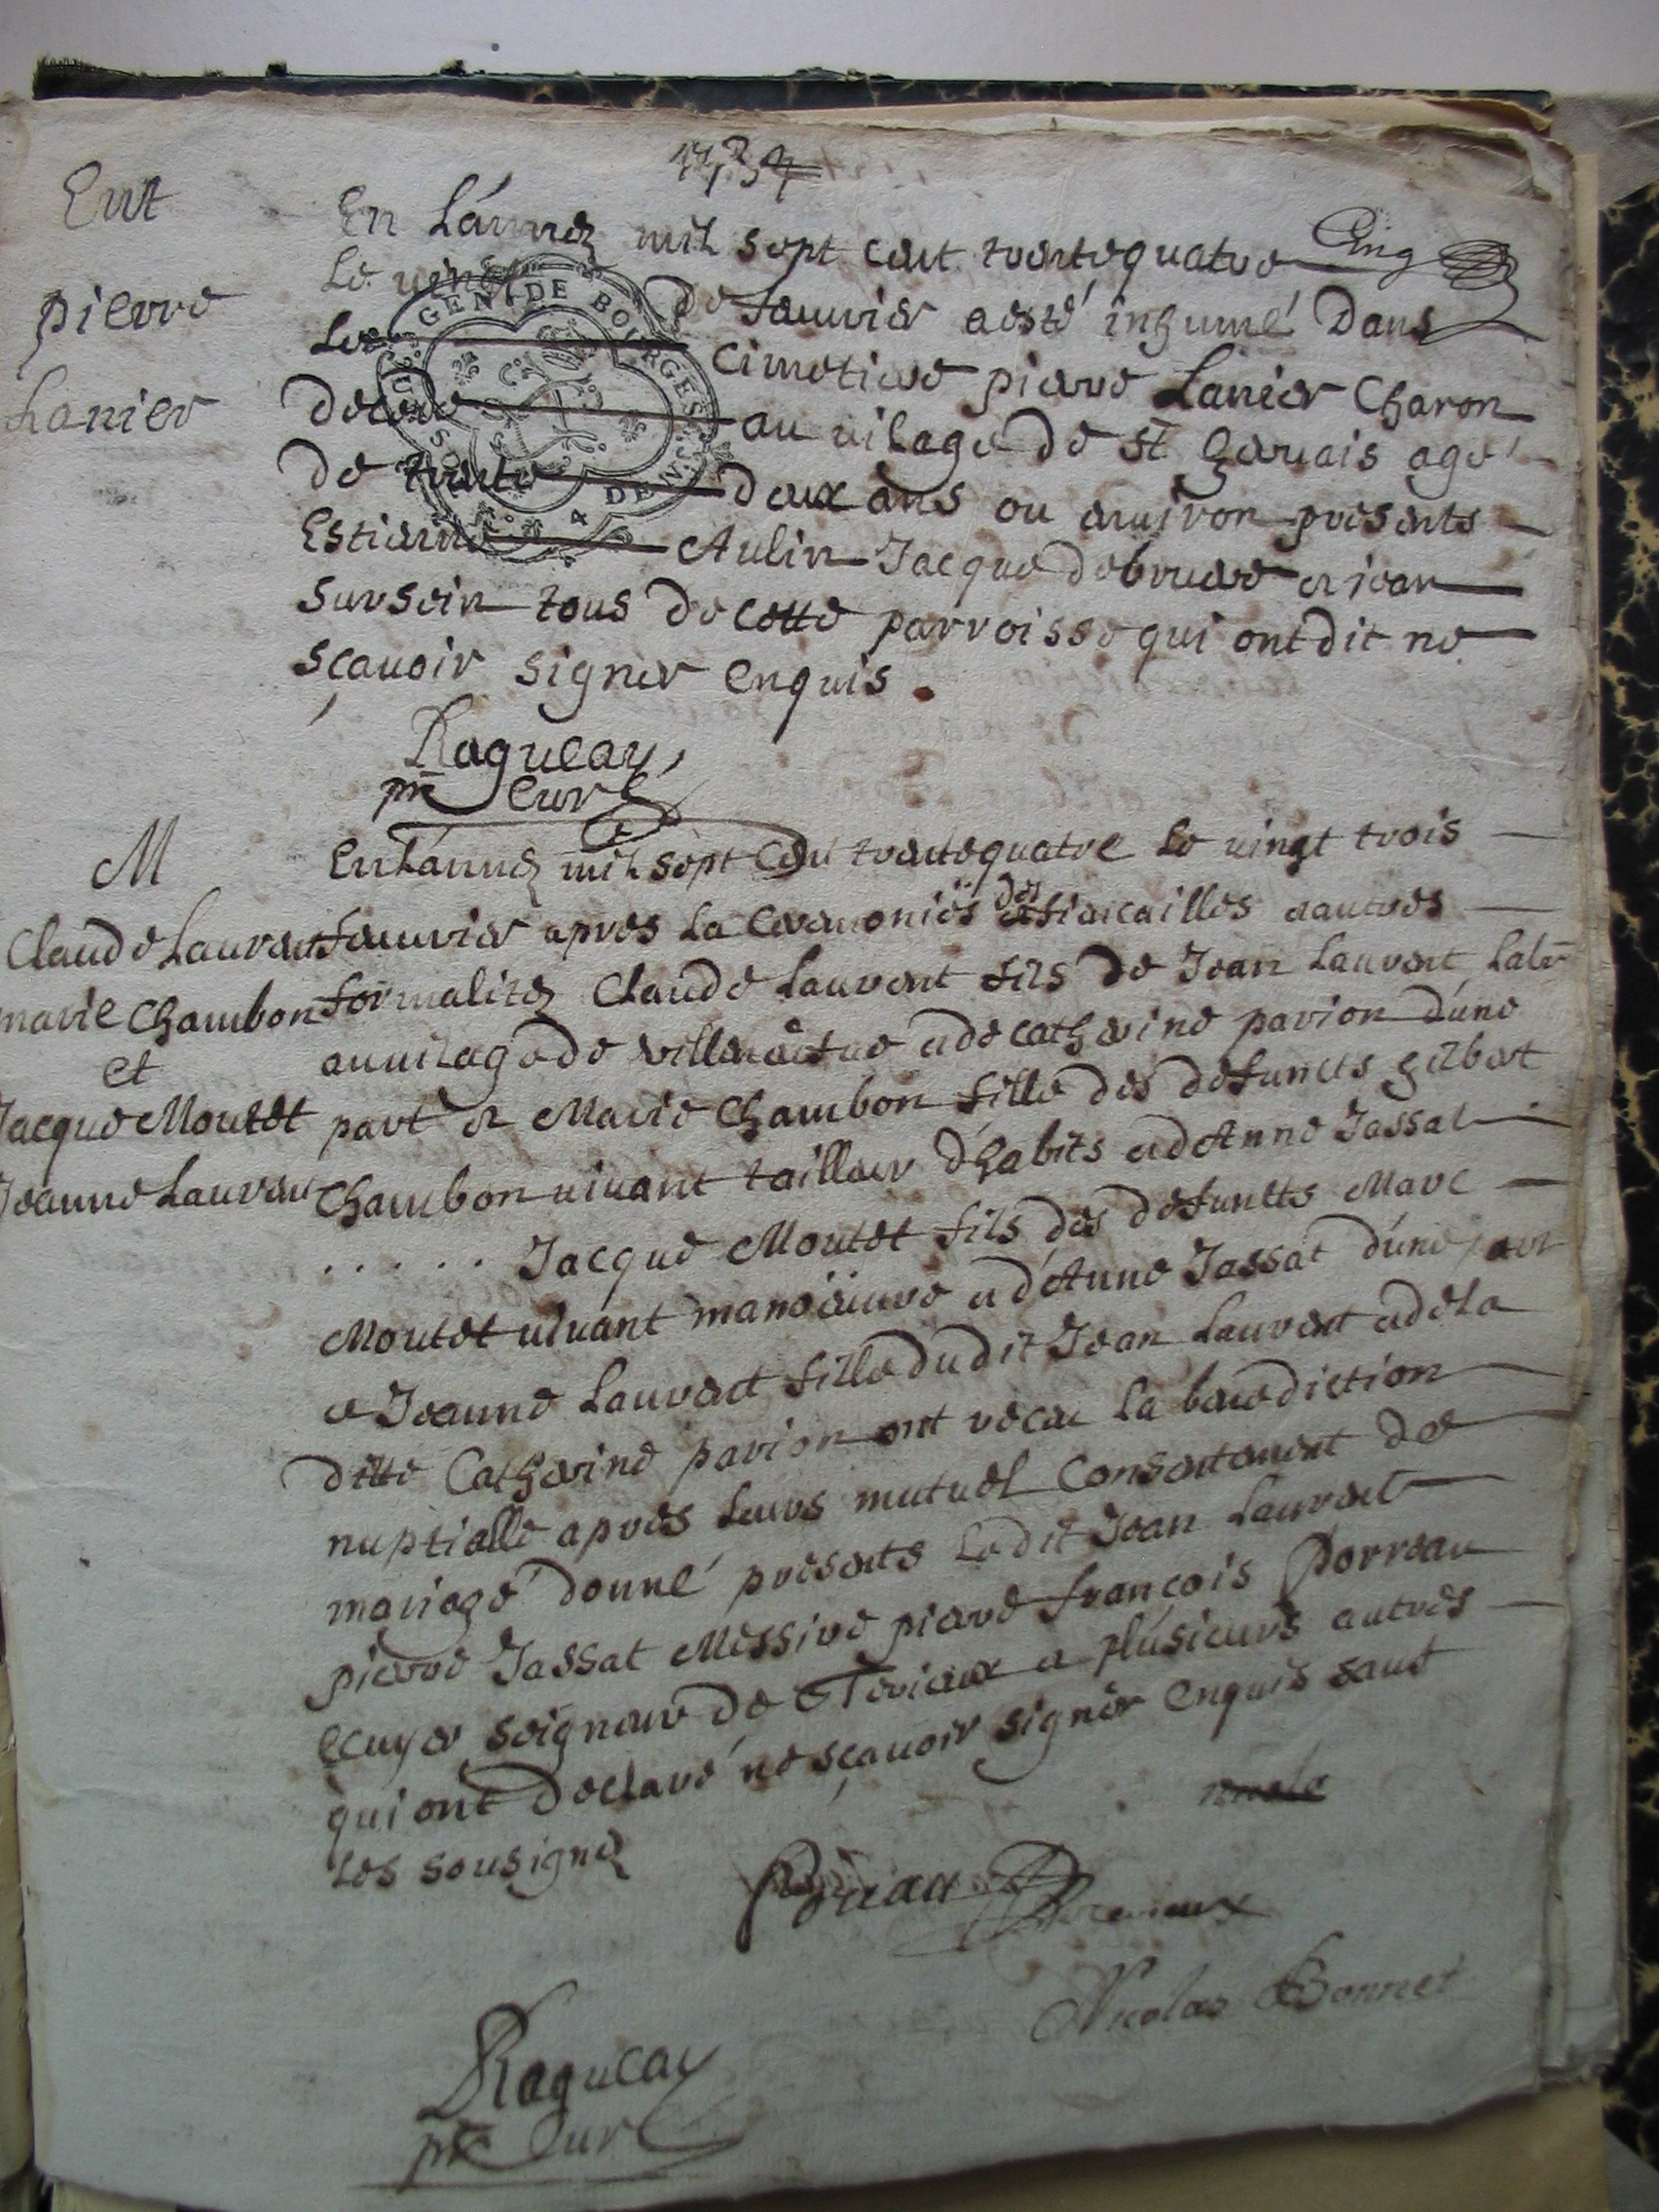 1734
Ent
pierre
Lanier
En L'année mil sept cent trente quatre Cinq
Le vingt de Januier a esté inhumé Dans
Le cimetiere pierre Lanier Charon
decedé au uilage de st geruais agé
de trente deux ans ou enuiron presents
Estienne Aulin Jacque debruere et iean
Sursein tous de cette parroisse qui ont dit ne
sçauoir signer enquis.
Ragueau
pre Curé
GEN. DE BOURGES
M
Claude Laurent
marie Chambon
et
Jacque Moutet
Jeanne Laurent
En L'année mil sept Cent trente quatre Le uingt trois
Januier apres La Ceremonies des fiancailles et autres
formalitez Claude Laurent fils de Jean Laurent Labr
au uilage de et de catherine parion d'une
part et Marie Chambon fille des defuncts gilbert
Chambon uiuant tailleur d'habits et d'Anne Jassat
..... Jacque Moutet fils des defuncts Marc
Moutet uiuant manoeuure et d'Anne Jassat d'une part
et Jeanne Laurent fille dudit Jean Laurent et de la
ditte Catherine parion ont receu la benediction
nuptialle apres leurs mutuel Consentement de
mariage donné presents Ledit Jean Laurent
pierre Jassat Messire pierre françois Porreau
ecuyer seigneur de et plusieurs autres
qui ont declaré ne sçauoir signer enquis sauf
les sousignez
Nicolas Bonnet
Ragueau
pre Curé